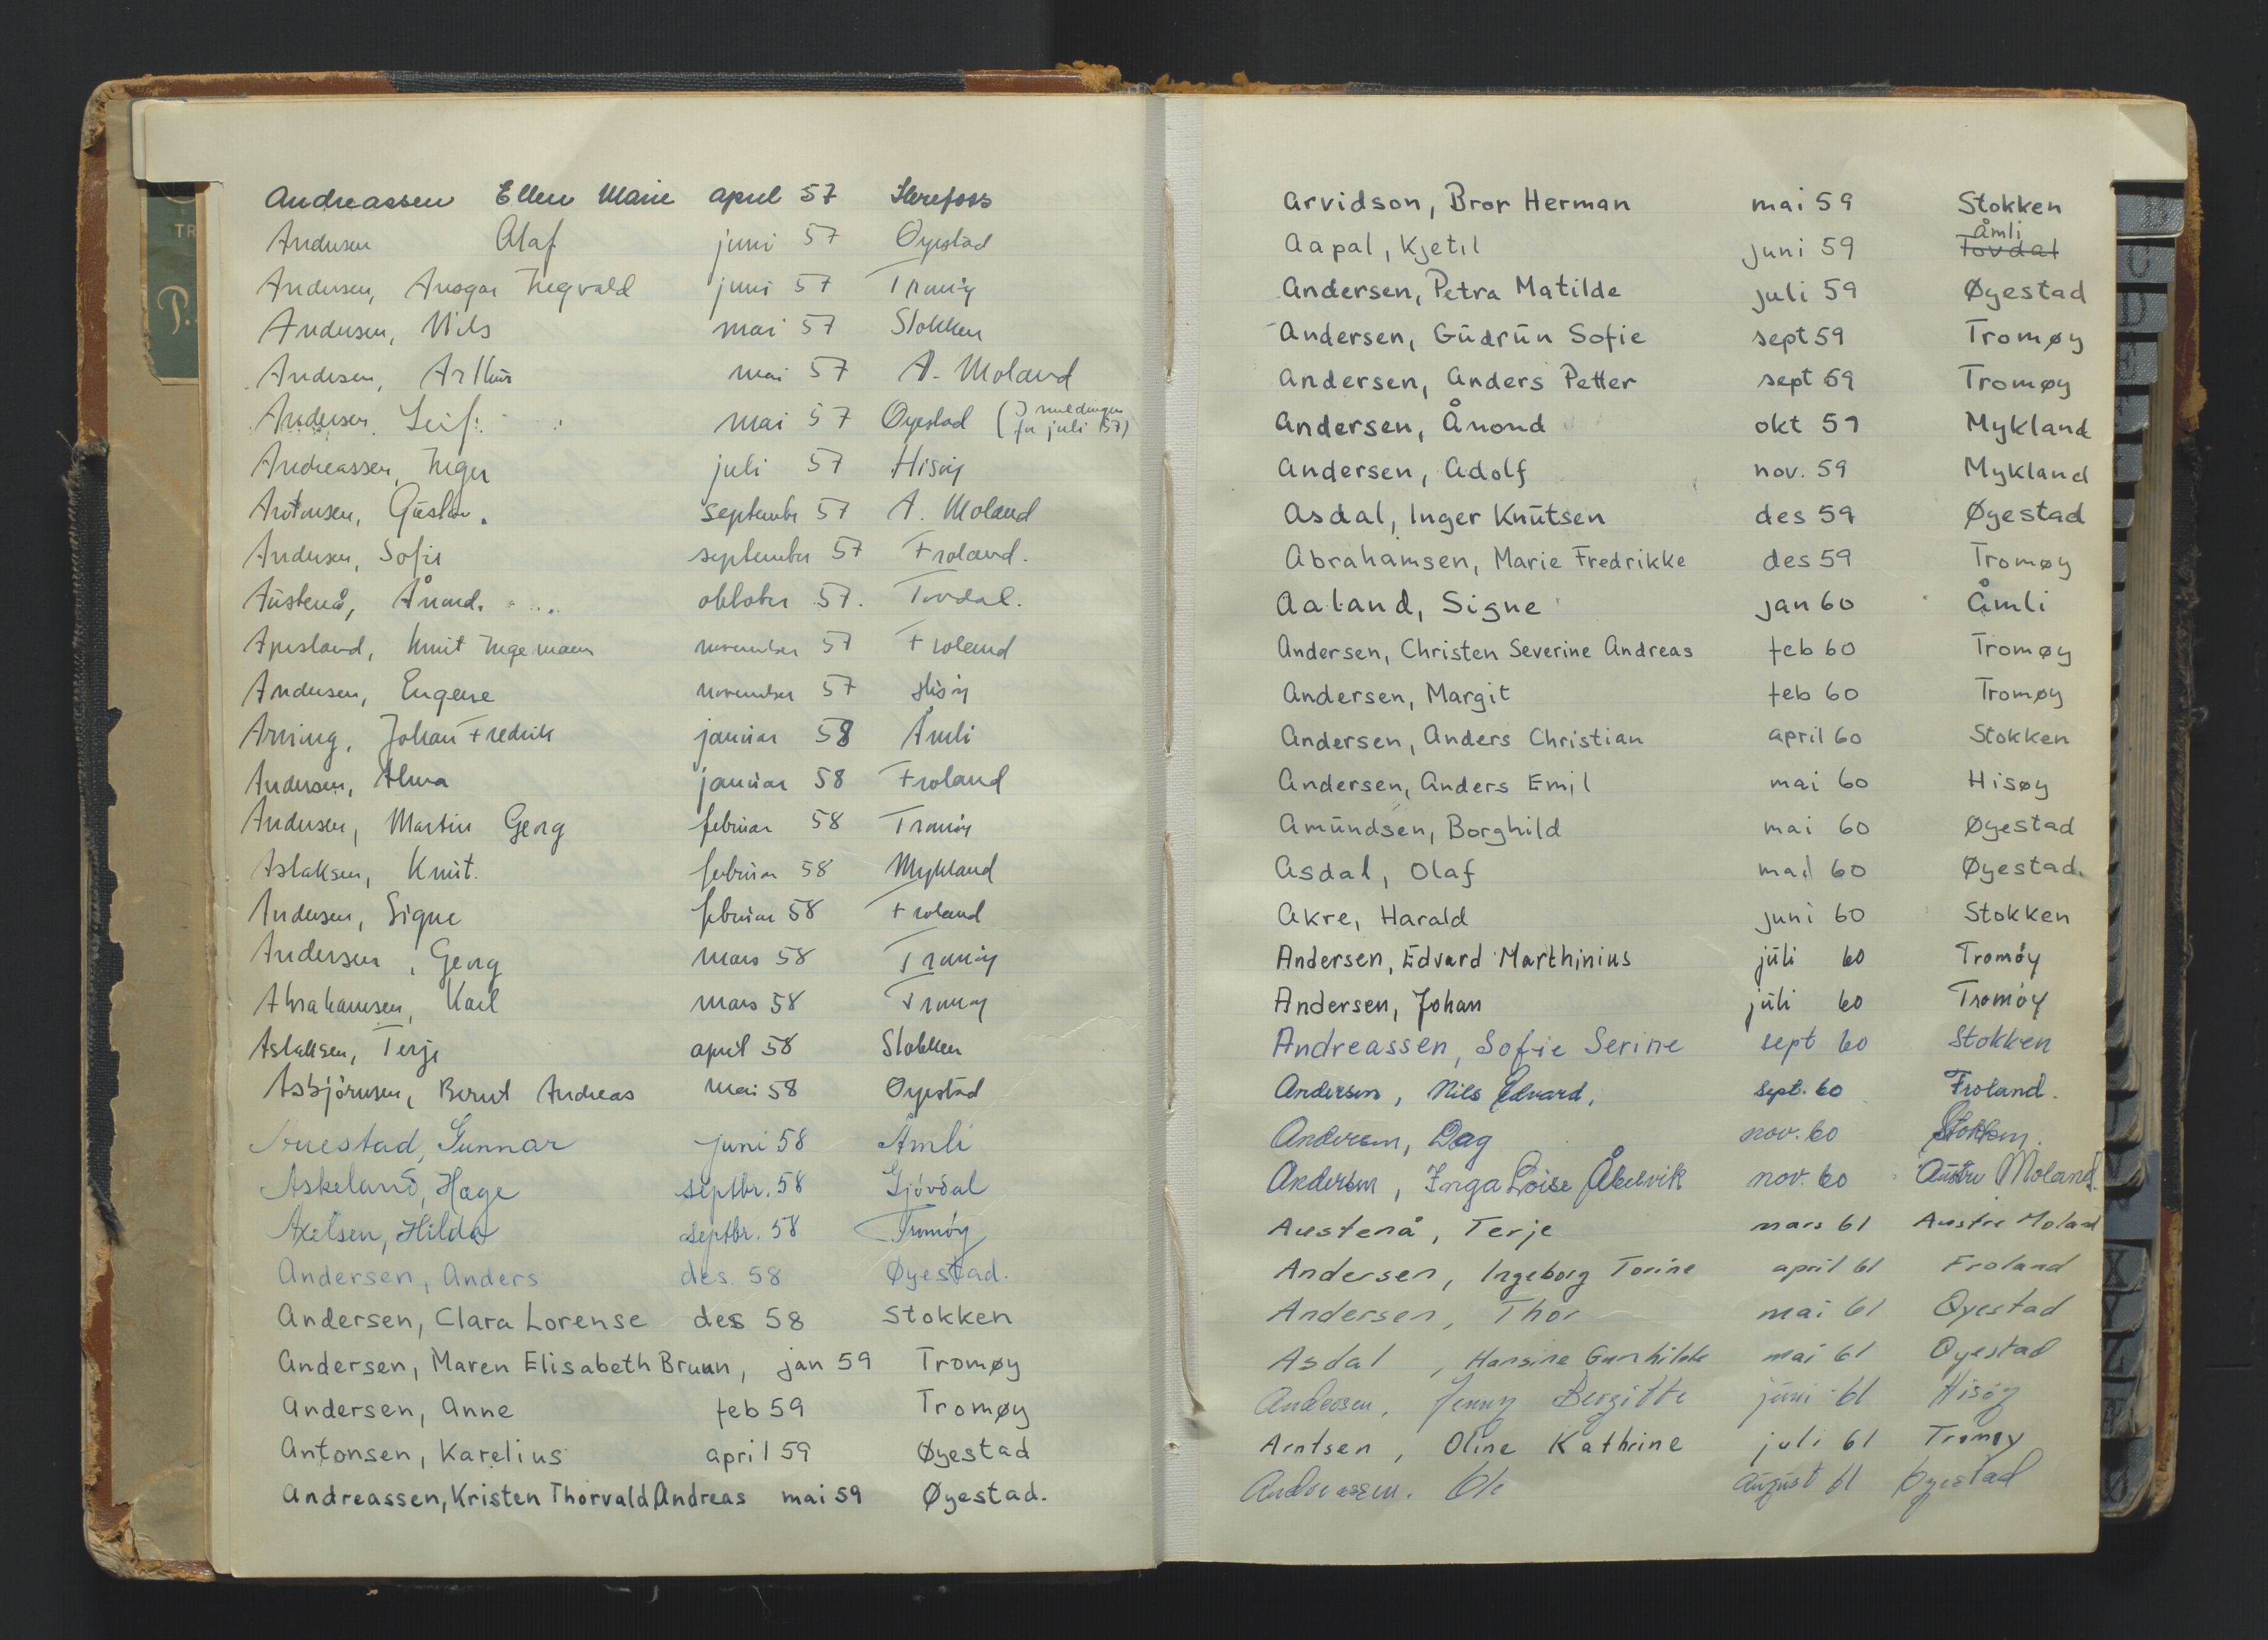 Andreassen Ellen Marie april 57 Herefoss
Andersen Olaf juni 57 Øyestad
Andersen, Ansgar Ingvald juni 57 Tromøy
Andersen, Nils mai 57 Stokken
Andersen, Arthur mai 57 A. Moland
Andersen Leif mai 57 Øyestad (I meldingen
for juli 57)
Andreassen, Inger juli 57 Hisøy
Antonsen, Gustav. september 57 A. Moland
Andersen, Sofie september 57 Froland.
Austenå, Ånond. oktober 57. Tovdal.
Apesland, Knut Ingemann november 57 Froland
Andersen, Eugene november 57 Hisøy
Arning, Johan Fredrik januar 58 Åmli
Andersen, Alma januar 58 Froland
Andersen, Martin Georg februar 58 Tromøy
Aslaksen, Knut. februar 58 Mykland
Andersen, Signe februar 58 Froland
Andersen, Georg mars 58 Tromøy
Abrahamsen, Karl mars 58 Tromøy
Aslaksen, Terje april 58 Stokken
Asbjörnsen, Bernt Andreas mai 58 Øyestad
Gunnar juni 58 Åmli
Askeland, Hage septbr. 58 Gjövdal
Axelsen, Hilda septbr. 58 Tromöy
Andersen, Anders des. 58 Øyestad.
Andersen, Clara Lorense des 58 Stokken
Andersen, Maren Elisabeth Bruun, jan 59 Tromøy
Andersen, Anne feb 59 Tromøy
Antonsen, Karelius april 59 Øyestad
Andreassen, Kristen Thorvald Andreas mai 59 Øyestad.
Arvidson, Bror Herman mai 59 Stokken
Åmli
Aapal, Kjetil juni 59 Tovdal
Andersen, Petra Matilde juli 59 Øyestad
Andersen, Gudrun Sofie sept 59 Tromøy
Andersen, Anders Petter sept 59 Tromøy
Andersen, Ånond okt 59 Mykland
Andersen, Adolf nov. 59 Mykland
Asdal, Inger Knutsen des 59 Øyestad
Abrahamsen, Marie Fredrikke des 59 Tromøy
Aaland, Signe jan 60 Åmli
Andersen, Christen Severine Andreas feb 60 Tromøy
Andersen, Margit feb 60 Tromøy
Andersen, Anders Christian april 60 Stokken
Andersen, Anders Emil mai 60 Hisøy
Amundsen, Borghild mai 60 Øyestad
Asdal, Olaf mai 60 Øyestad.
Akre, Harald juni 60 Stokken
Andersen, Edvard Marthinius juli 60 Tromöy
Andersen, Johan juli 60 Tromöy
Andreassen, Sofie Serine sept 60 Stokken
Andersen, Nils Edvard. sept. 60 Froland.
Andersen, Dag nov. 60 Stokken.
Andersen, Inga Loise Åkelvik nov. 60 Austre Moland.
Austenå, Terje mars 61 Austre Moland
Andersen, Ingeborg Torine april 61 Froland
Andersen, Thor mai 61 Øyestad
Asdal, Hansine Gunhilde mai 61 Øyestad
Andersen, Jenny Bergitte juni 61 Hisöy
Arntsen, Oline Kathrine juli 61 Tromøy
Andreassen. Ole august 61 Øyestad